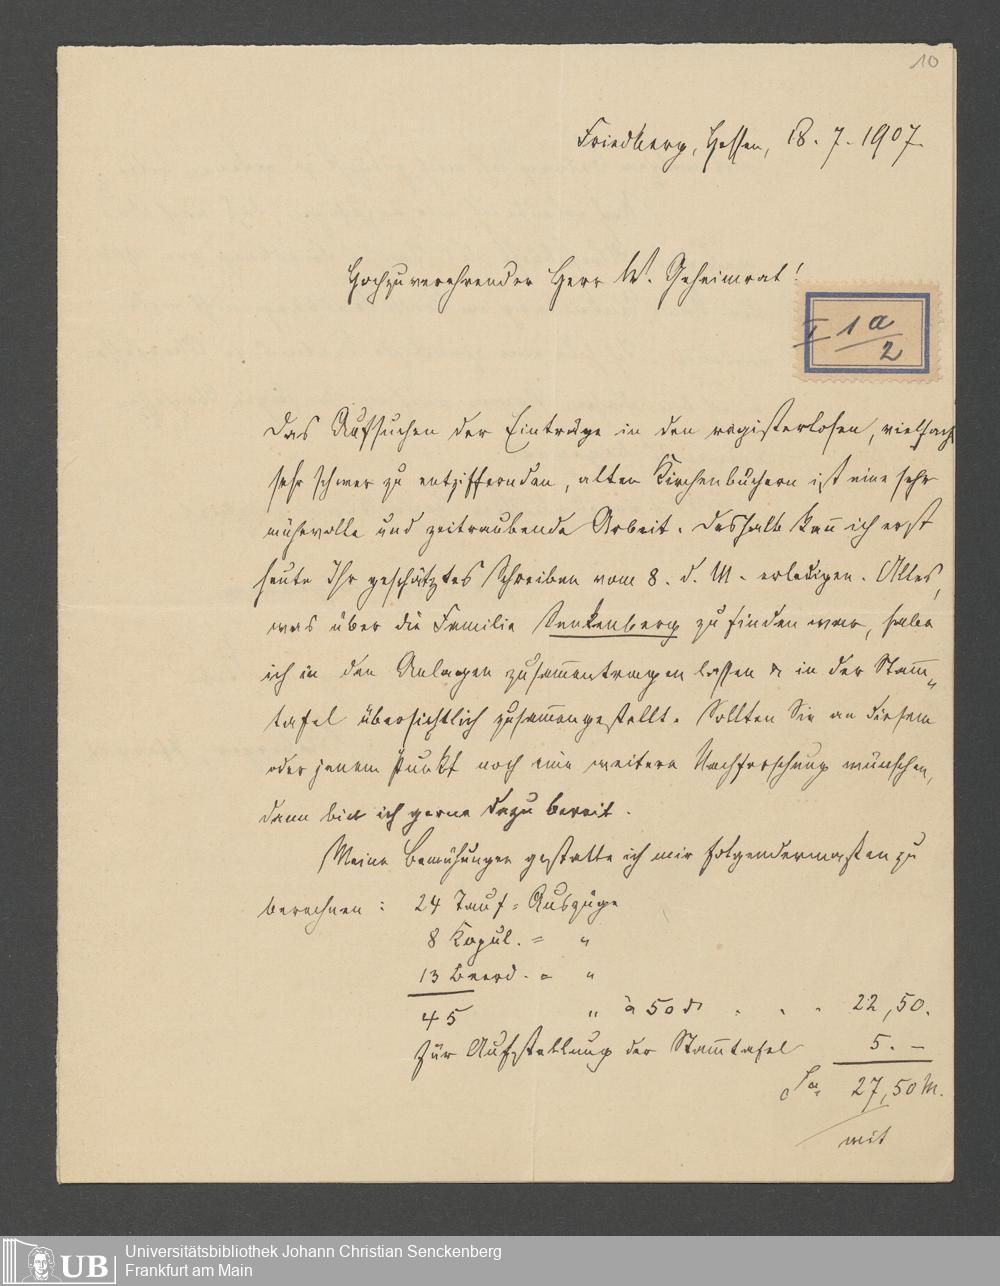 10
Friedberg, Hessen, 18. 7. 1907.
Hochzuverehrender Herr W. Geheimrat!
I 1 a/2
Das Aufsuchen der Einträge in den registerlosen, vielfach
sehr schwer zu entziffernden, alten Kirchenbüchern ist eine sehr
mühevolle und zeitraubende Arbeit. Deshalb kan̄ ich erst
heute Ihr geschätztes Schreiben vom 8. d. M. erledigen. Alles,
was über die Familie Senkenberg zu finden war, habe
ich in den Anlagen zusam̄entragen lassen & in der Stam̄„
tafel übersichtlich zusam̄engestellt. Sollten Sie an diesem
oder jenem Punkt noch eine weitere Nachforschung wünschen,
dann bin ich gerne dazu bereit.
Meine Bemühungen gestatte ich mir folgendermaßen zu
berechnen: 24 Tauf=Auszüge
8 Kopul. = "
13 Beerd. = "
45 " à 50 ₰ . . . 22,50.
Für Aufstellung der Stam̄tafel 5. –
Sa. 27,50 M.
mit
UB
Universitätsbibliothek Johann Christian Senckenberg
Frankfurt am Main